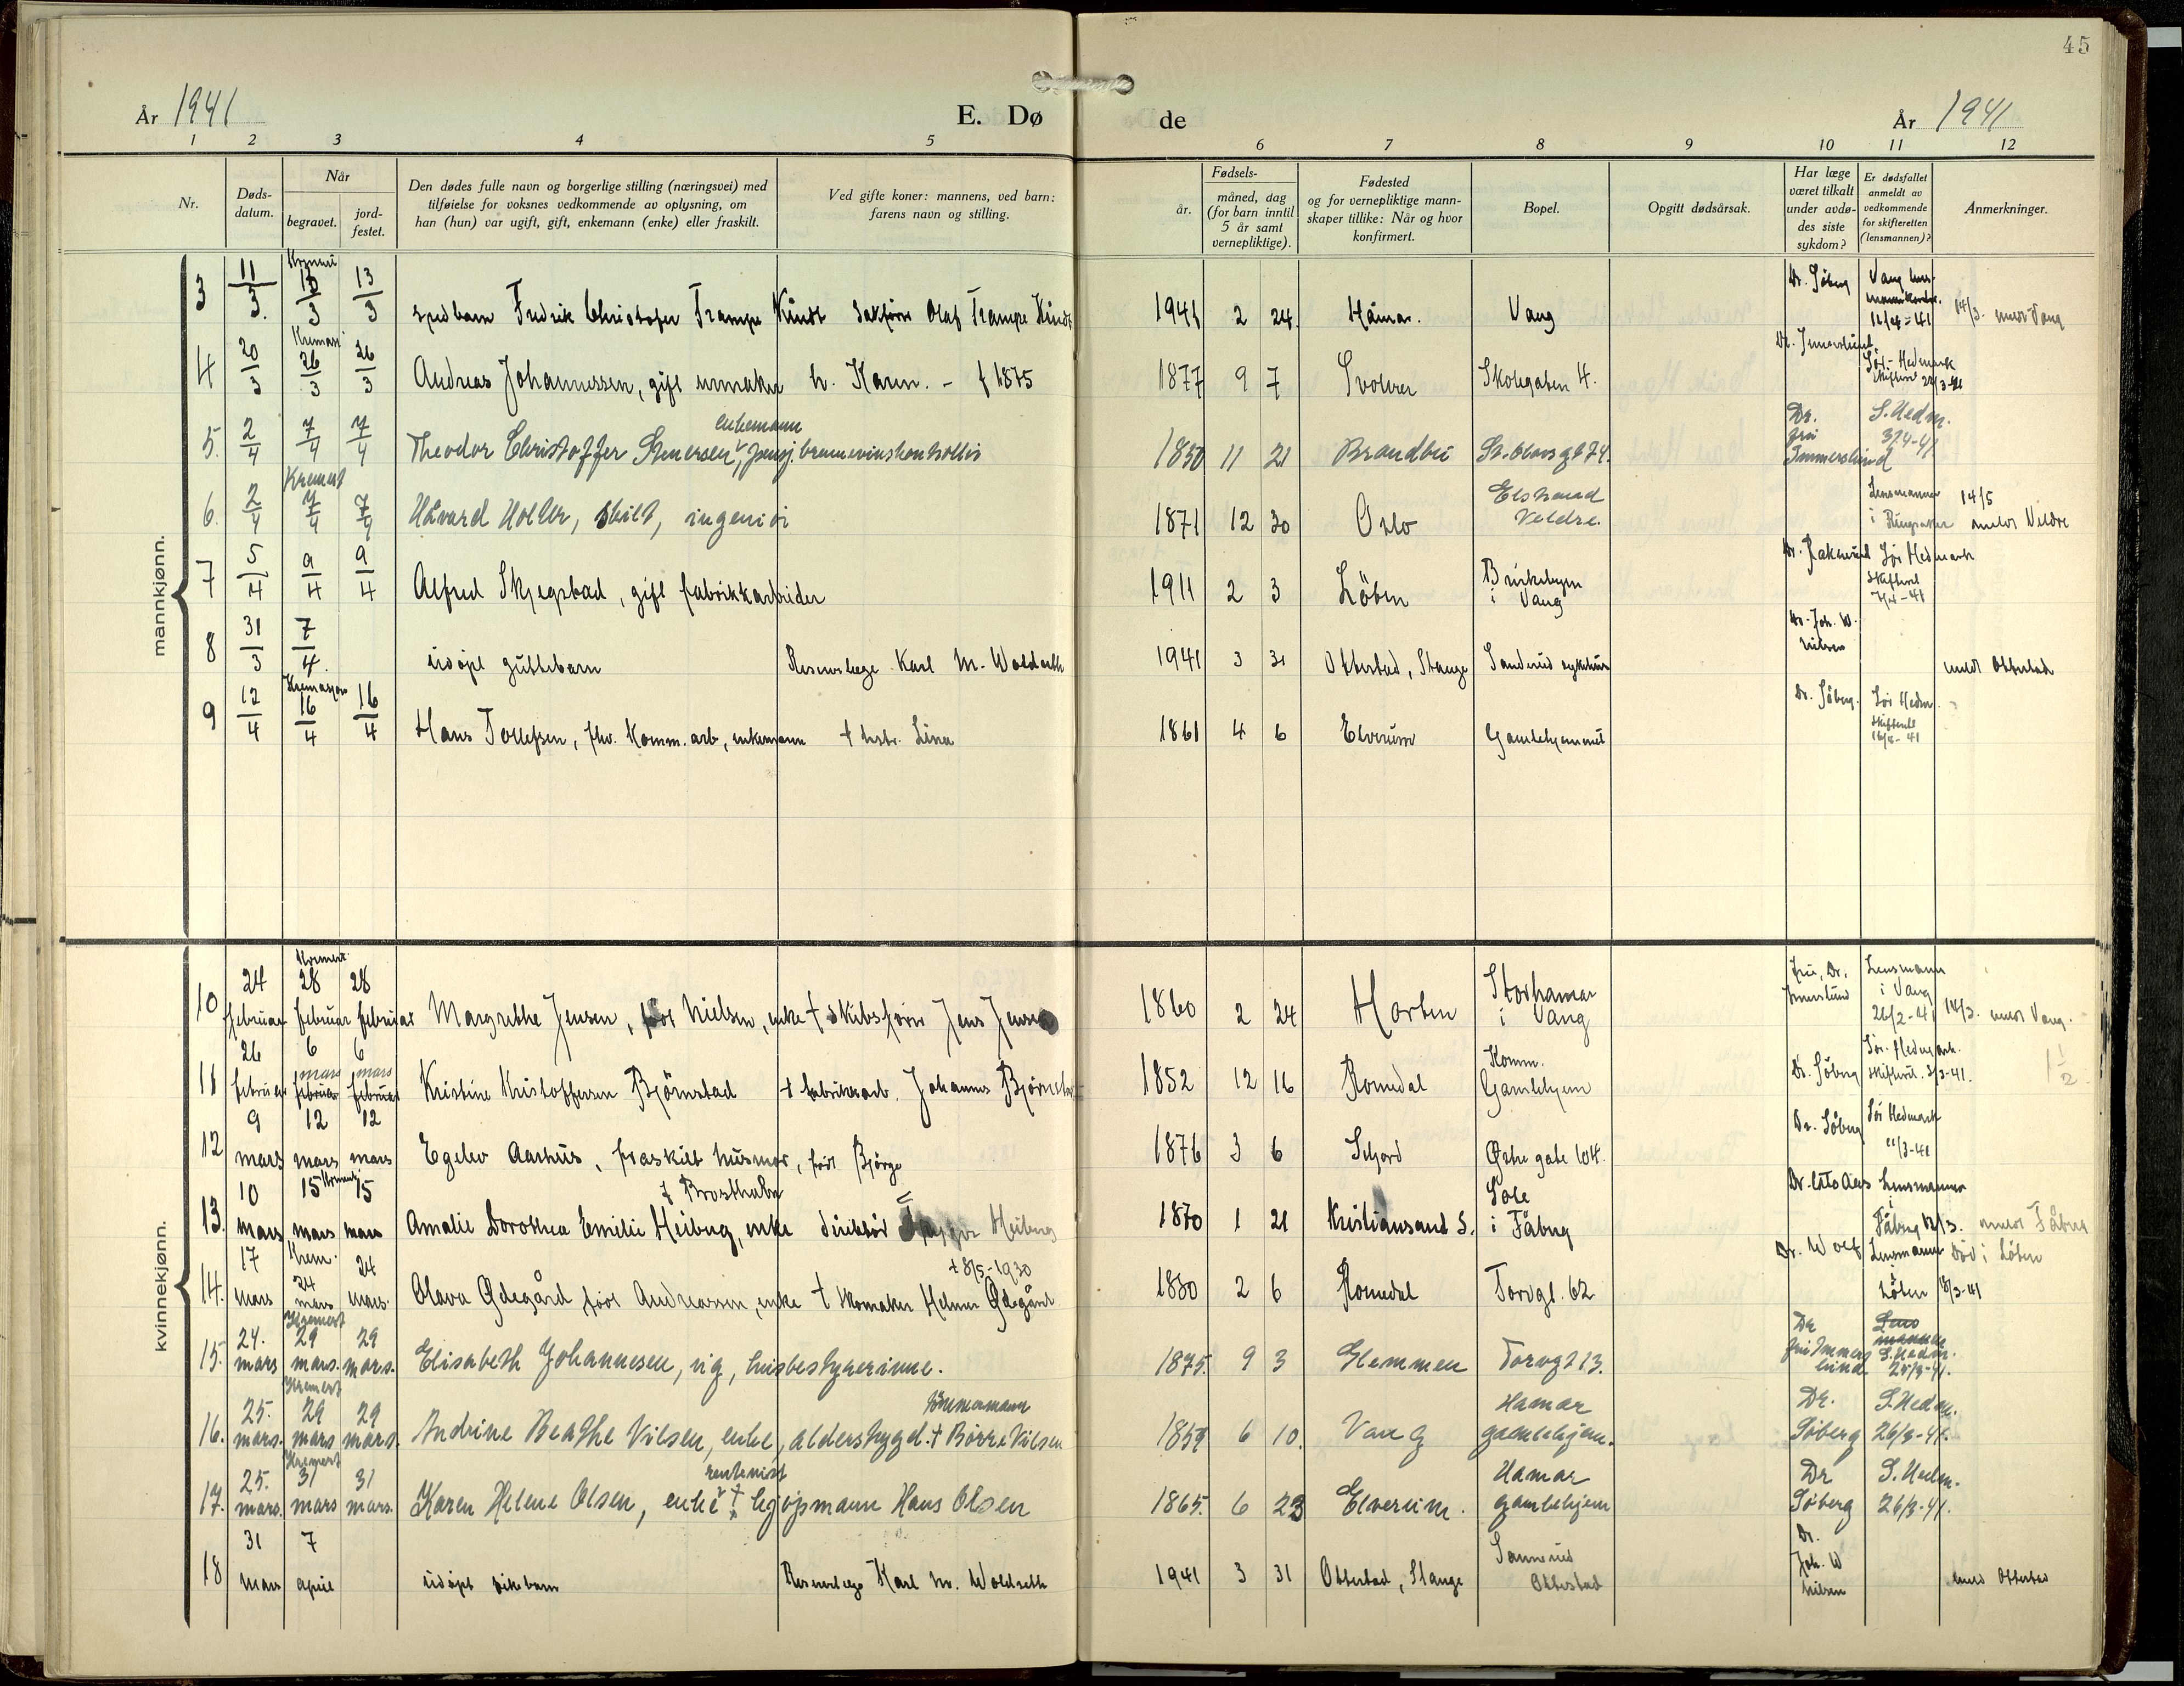 45
År 1941
E. Dø
de
År 1941
1 2 3 4 5 6 7 8 9 10 11 12
Nr.
Døds-
datum.
Når
begravet.
jord-
festet.
Den dødes fulle navn og borgerlige stilling (næringsvei) med
tilføielse for voksnes vedkommende av oplysning, om
han (hun) var ugift, gift, enkemann (enke) eller fraskilt.
Ved gifte koner: mannens, ved barn:
farens navn og stilling.
Fødsels-
år.
måned, dag
(for barn inntil
5 år samt
vernepliktige).
Fødested
og for vernepliktige mann-
skaper tillike: Når og hvor
konfirmert.
Bopel.
Opgitt dødsårsak.
Har læge
været tilkalt
under avdø-
des siste
sykdom?
Er dødsfallet
anmeldt av
vedkommende
for skifteretten
(lensmannen)?
Anmerkninger.
mannkjønn.
3 11/3 13/3 13/3 spedbarn Fredrik Christofer Trampe Kindt sakfører Olaf Trampe Kindt 1941 2 24 Hamar. Vang Dr. Söberg Vang 14/3. meldt Vang
4 20/3 26/3 26/3 Andreas Johannessen, gift urmaker h. Karen. - f 1875 1877 9 7 Svolvær Skolegaten 4. Sör-Hedmark skifterett
5. 2/4 7/4 7/4 Theodor Christoffer Stenersen, enkemann 1850 11 21 Brandbu St. Olavs gt 74. Dr. fru Immerslund S. Hedm. 3/4-41
6. 2/4 Kremert 7/4 7/4 Håvard Holter, skilt, ingeniör 1871 12 30 Oslo Veldre. Lensmannen i Ringsaker 14/5 meldt Veldre
7 5/4 9/4 9/4 Alfred Skjegstad, gift fabrikkarbeider 1911 2 3 Löten i Vang Sör Hedmark skifterett 7/4-41
8 31/3 7/4. udöpt guttebarn Reservelæge Karl M. Woldseth 1941 3 31 Ottestad, Stange Sanderud sykehus Dr. Joh. W. Nilsen meldt Ottestad
9 12/4 Kremasjon 16/4 16/4 Hans Tollefsen, fhv. Komm. arb, enkemann † hstr. Lina 1861 4 6 Elverum Gamlehjemmet Dr. Söberg. Sör Hedm. skifterett 16/4-41
kvinnekjønn.
10 24 februar Kremert 28 februar 28 februar Margrethe Jensen, för Nielsen, enke † skibsförer Jens Jensen 1860 2 24 Horten Storhamar i Vang fru, Dr. Immerslund Lensmann i Vang 26/2-41 14/3. meldt Vang.
11 26 februar 6 mars februar 6 mars februar Kristine Kristoffersen Björnstad † fabrikkarb. Johannes Björnstad 1852 12 16 Romedal Komm. Gamlehjem Dr. Söberg Sör-Hedmark. skifterett. 3/3-41. 1 1/2
12 9 mars 12 mars 12 mars Egelev Aarhus, fraskilt husmor, född Björge 1876 3 6 Seljord Østre gate 104. Dr. Söberg Sör Hedmark 11/3-41
13. 10 mars 15 mars 15 mars Amalie Dorothea Emilie Heiberg, enke f Brosthaben direktör Heiberg 1870 1 21 Kristiansand S. i Fåberg Lensmannen i Fåberg 12/3. meldt Fåberg
14. 17 mars Krem. 24 mars 24 mars. Olava Ødegård född Andreassen, enke † skomaker Helmer Ødegård † 8/5-1930 1880 2 6 Romedal Torvgt. 62 Dr. Wolf Lensmannen i Löten 18/3-41 Död i Löten
15. 24. mars Kremert 29 mars. 29 mars. Elisabeth Johannesen, ug, husbestyrerinne. 1875. 9 3 Glemmen Torvgt 13. Dr fru Immerslund S. Hedm. 25/3-41.
16. 25. mars. Kremert 29 mars 29 mars. Andrine Beathe Nilsen, enke, alderstrygd. † Börre Nilsen 1859 6 10. Vang Hamar gamlehjem. Dr. Söberg S. Hedm. 26/3-41.
17. 25. mars. Kremert 31 mars 31 mars. Karen Helene Olsen, enke † rentenist kjöpmann Hans Olsen 1865. 6 23 Elverum. Hamar gamlehjem Dr Söberg S. Hedm. 26/3-41.
18 31 mars 7 april udöpt pikebarn Reservelæge Karl M. Woldseth 1941 3 31 Ottestad, Stange Sannerud Ottestad Dr. Joh. W Nilsen meldt Ottestad